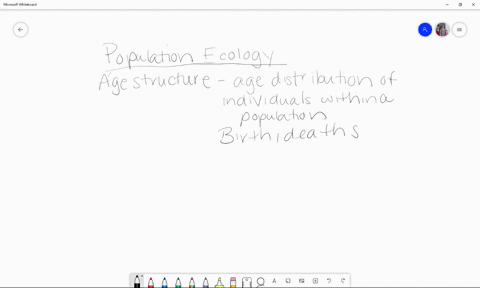 Microsoft Whiteboard
Population Ecology
Age structure - age distribution of
individuals within a
population
Birth, deaths